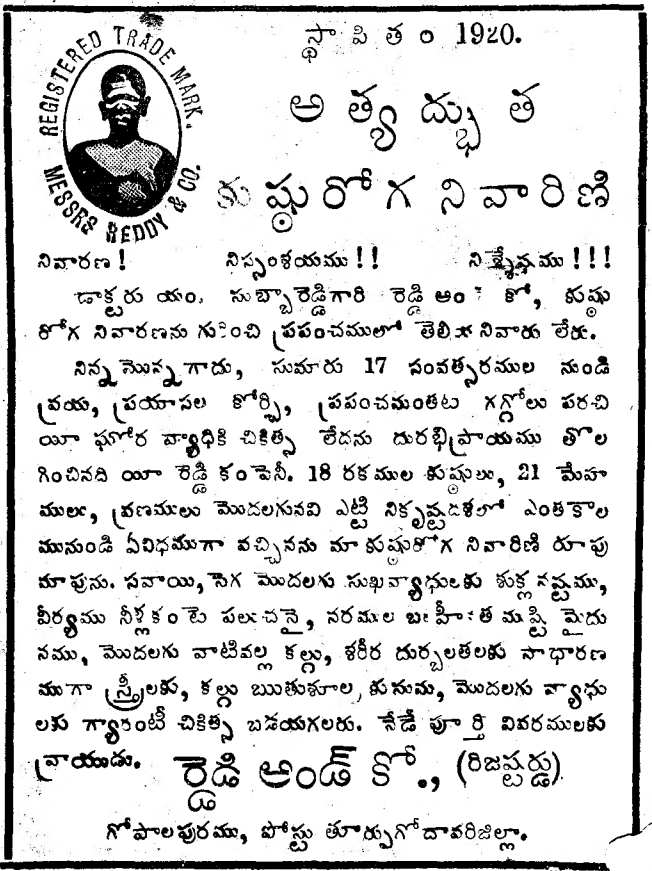 REGISTERED TRADE MARK.
MESSRS REDDY & CO.
స్థాపితం 1920.
అత్యద్భుత
కుష్ఠురోగ నివారిణి
నివారణ! నిస్సంశయము!! నిశ్శేషము!!!
డాక్టరు యం. సుబ్బారెడ్డిగారి రెడ్డి అండ్ కో, కుష్ఠు
రోగ నివారణను గురించి ప్రపంచములో తెలియనివారు లేరు.
నిన్న మొన్నగాదు, సుమారు 17 సంవత్సరముల నుండి
వ్రయ, ప్రయాసల కోర్చి, ప్రపంచమంతట గగ్గోలు పరచి
యీ ఘోర వ్యాధికి చికిత్స లేదను దురభిప్రాయము తొల
గించినది యీ రెడ్డి కంపెనీ. 18 రకముల కుష్ఠులు, 21 మేహ
ములు, వ్రణములు మొదలగునవి ఎట్టి నికృష్టదశలో ఎంతకాల
మునుండి ఏవిధముగా వచ్చినను మా కుష్ఠురోగ నివారిణి రూపు
మాపును. సవాయి, సెగ మొదలగు సుఖవ్యాధులకు శుక్ల నష్టము,
వీర్యము నీళ్లకంటె పలుచనై, నరముల బలహీనత ముష్టి మైదు
నము, మొదలగు వాటివల్ల కల్గు, శరీర దుర్బలతలకు సాధారణ
ముగా స్త్రీలకు, కల్గు ఋతుశూల, కుసుమ, మొదలగు వ్యాధు
లకు గ్యారంటీ చికిత్స బడయగలరు. నేడే పూర్తి వివరములకు
వ్రాయుడు. రెడ్డి అండ్ కో., (రిజష్టర్డు).
గోపాలపురము, పోస్టు తూర్పుగోదావరిజిల్లా.